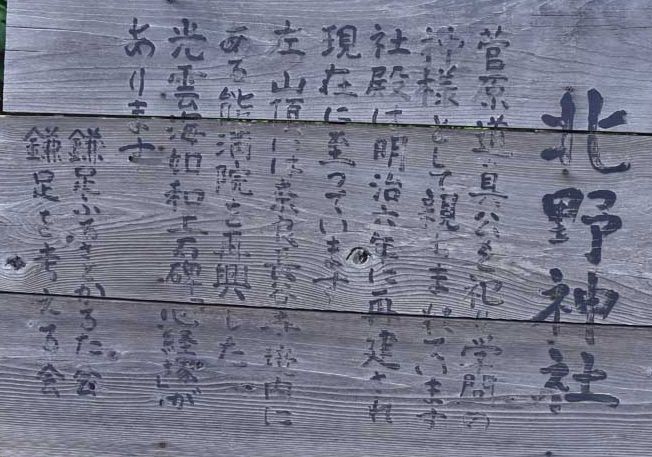 北野神社
菅原道真公を祀り学問の
神様として親しまれています
社殿は明治六年に再建され
現在に至っています
左山頂には奈良長谷寺境内に
ある能満院を再興した
光雲海如和上石碑、心経塚が
あります
鎌足ふるさとかるた会
鎌足を考える会